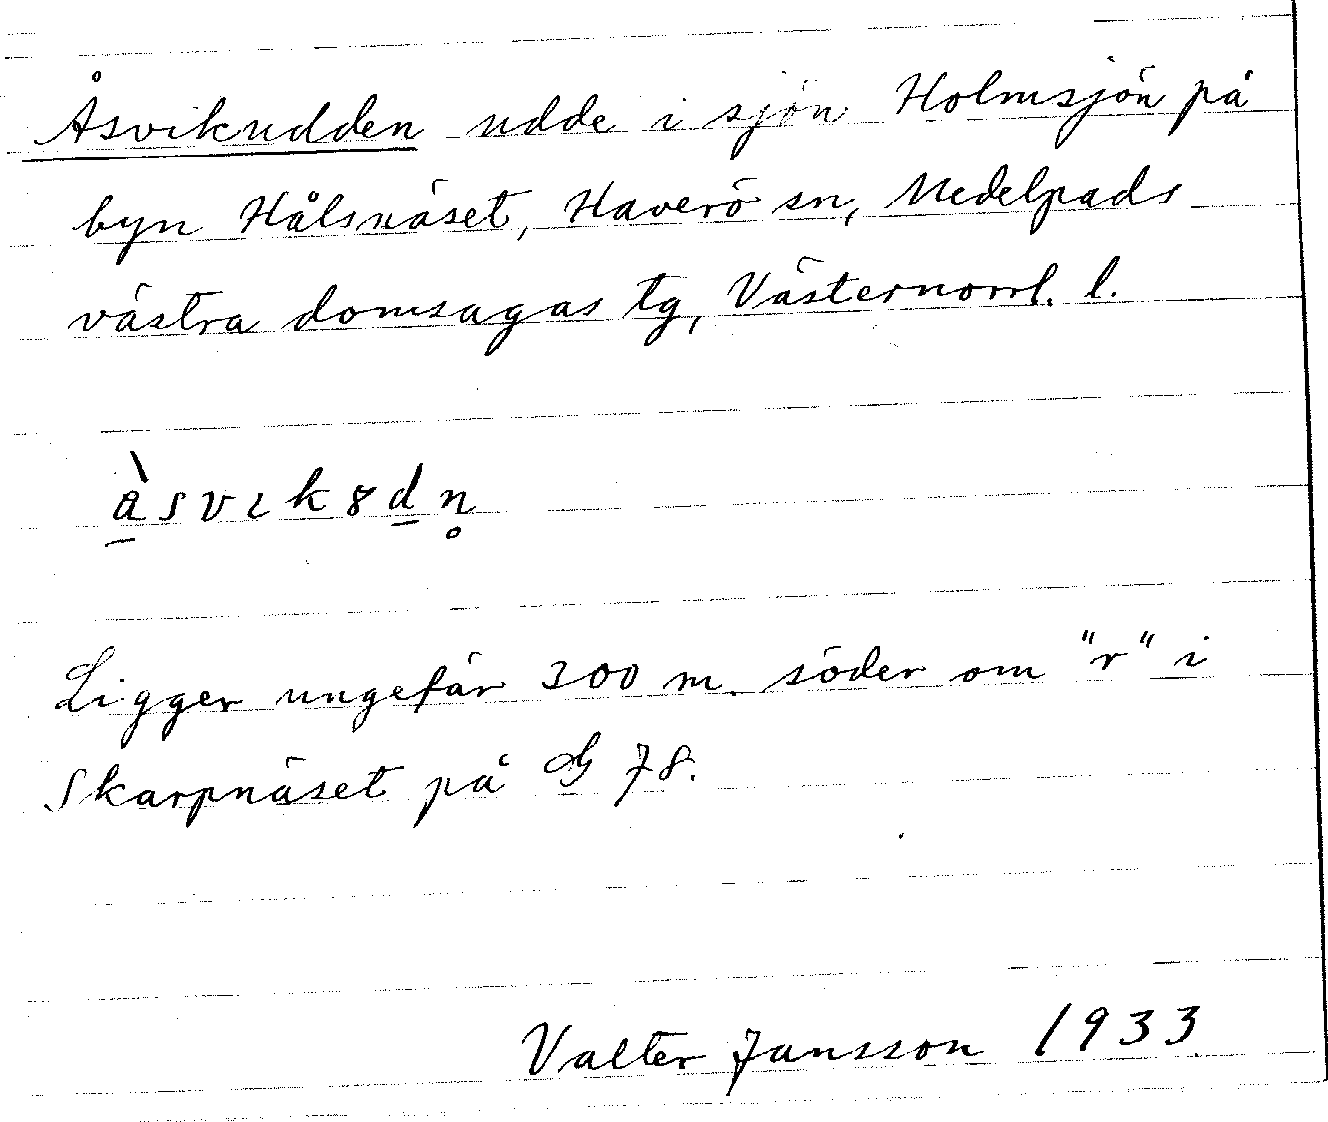 Åsvikudden udde i sjön Holmsjön på
byn Hålsnäset, Haverö sn, Medelpads
västra domsagas tg, Västernorrl. l.
Ligger ungefär 300 m. söder om "r" i
Skarpnäset på G 78.
Valter Jansson 1933